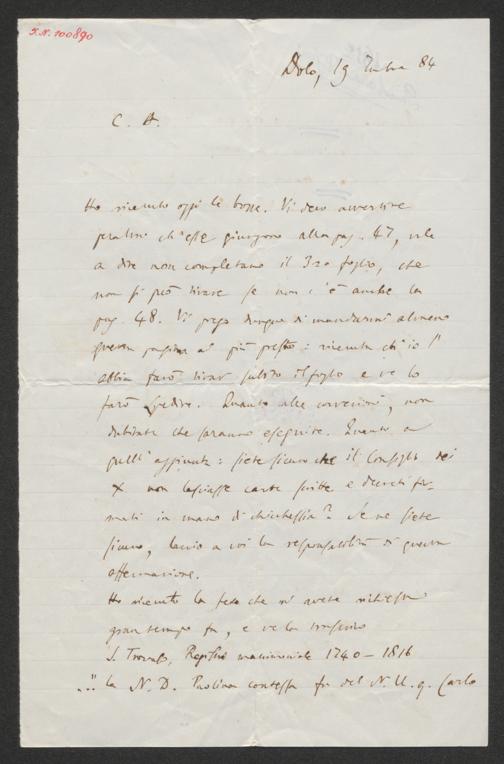 I.N. 100890
Dolo, 19 84
C. A.
Ho ricevuto oggi le bozze. Vi devo avvertire
peraltro ch'esse giungono alla pag. 47, vale
a dire non completano il 3zo foglio, che
non si può tirare se non c'è anche la
pag. 48. Vi prego dunque di mandarmi almeno
questa pagina al più presto: ricevuta ch'io l'
abbia farò tirar subito il foglio e ve lo
farò spedire. Quanto alle correzioni, non
dubitate che saranno eseguite. Quanto a
quell'aggiunta: siete sicuro che il Consiglio dei
X non lasciasse carte scritte e decreti fir-
mati in mano di chichessia? Se ne siete
sicuro, lascio a voi la responsabilità di questa
affermazione.
Ho ricevuto la fede che m'avete richiesta
gran tempo fa, e ve la trascrivo
S. Trovaso, Registro matrimoniale 1740–1816
..." la N. D. Paolina contessa fu del N. U. q. Carlo